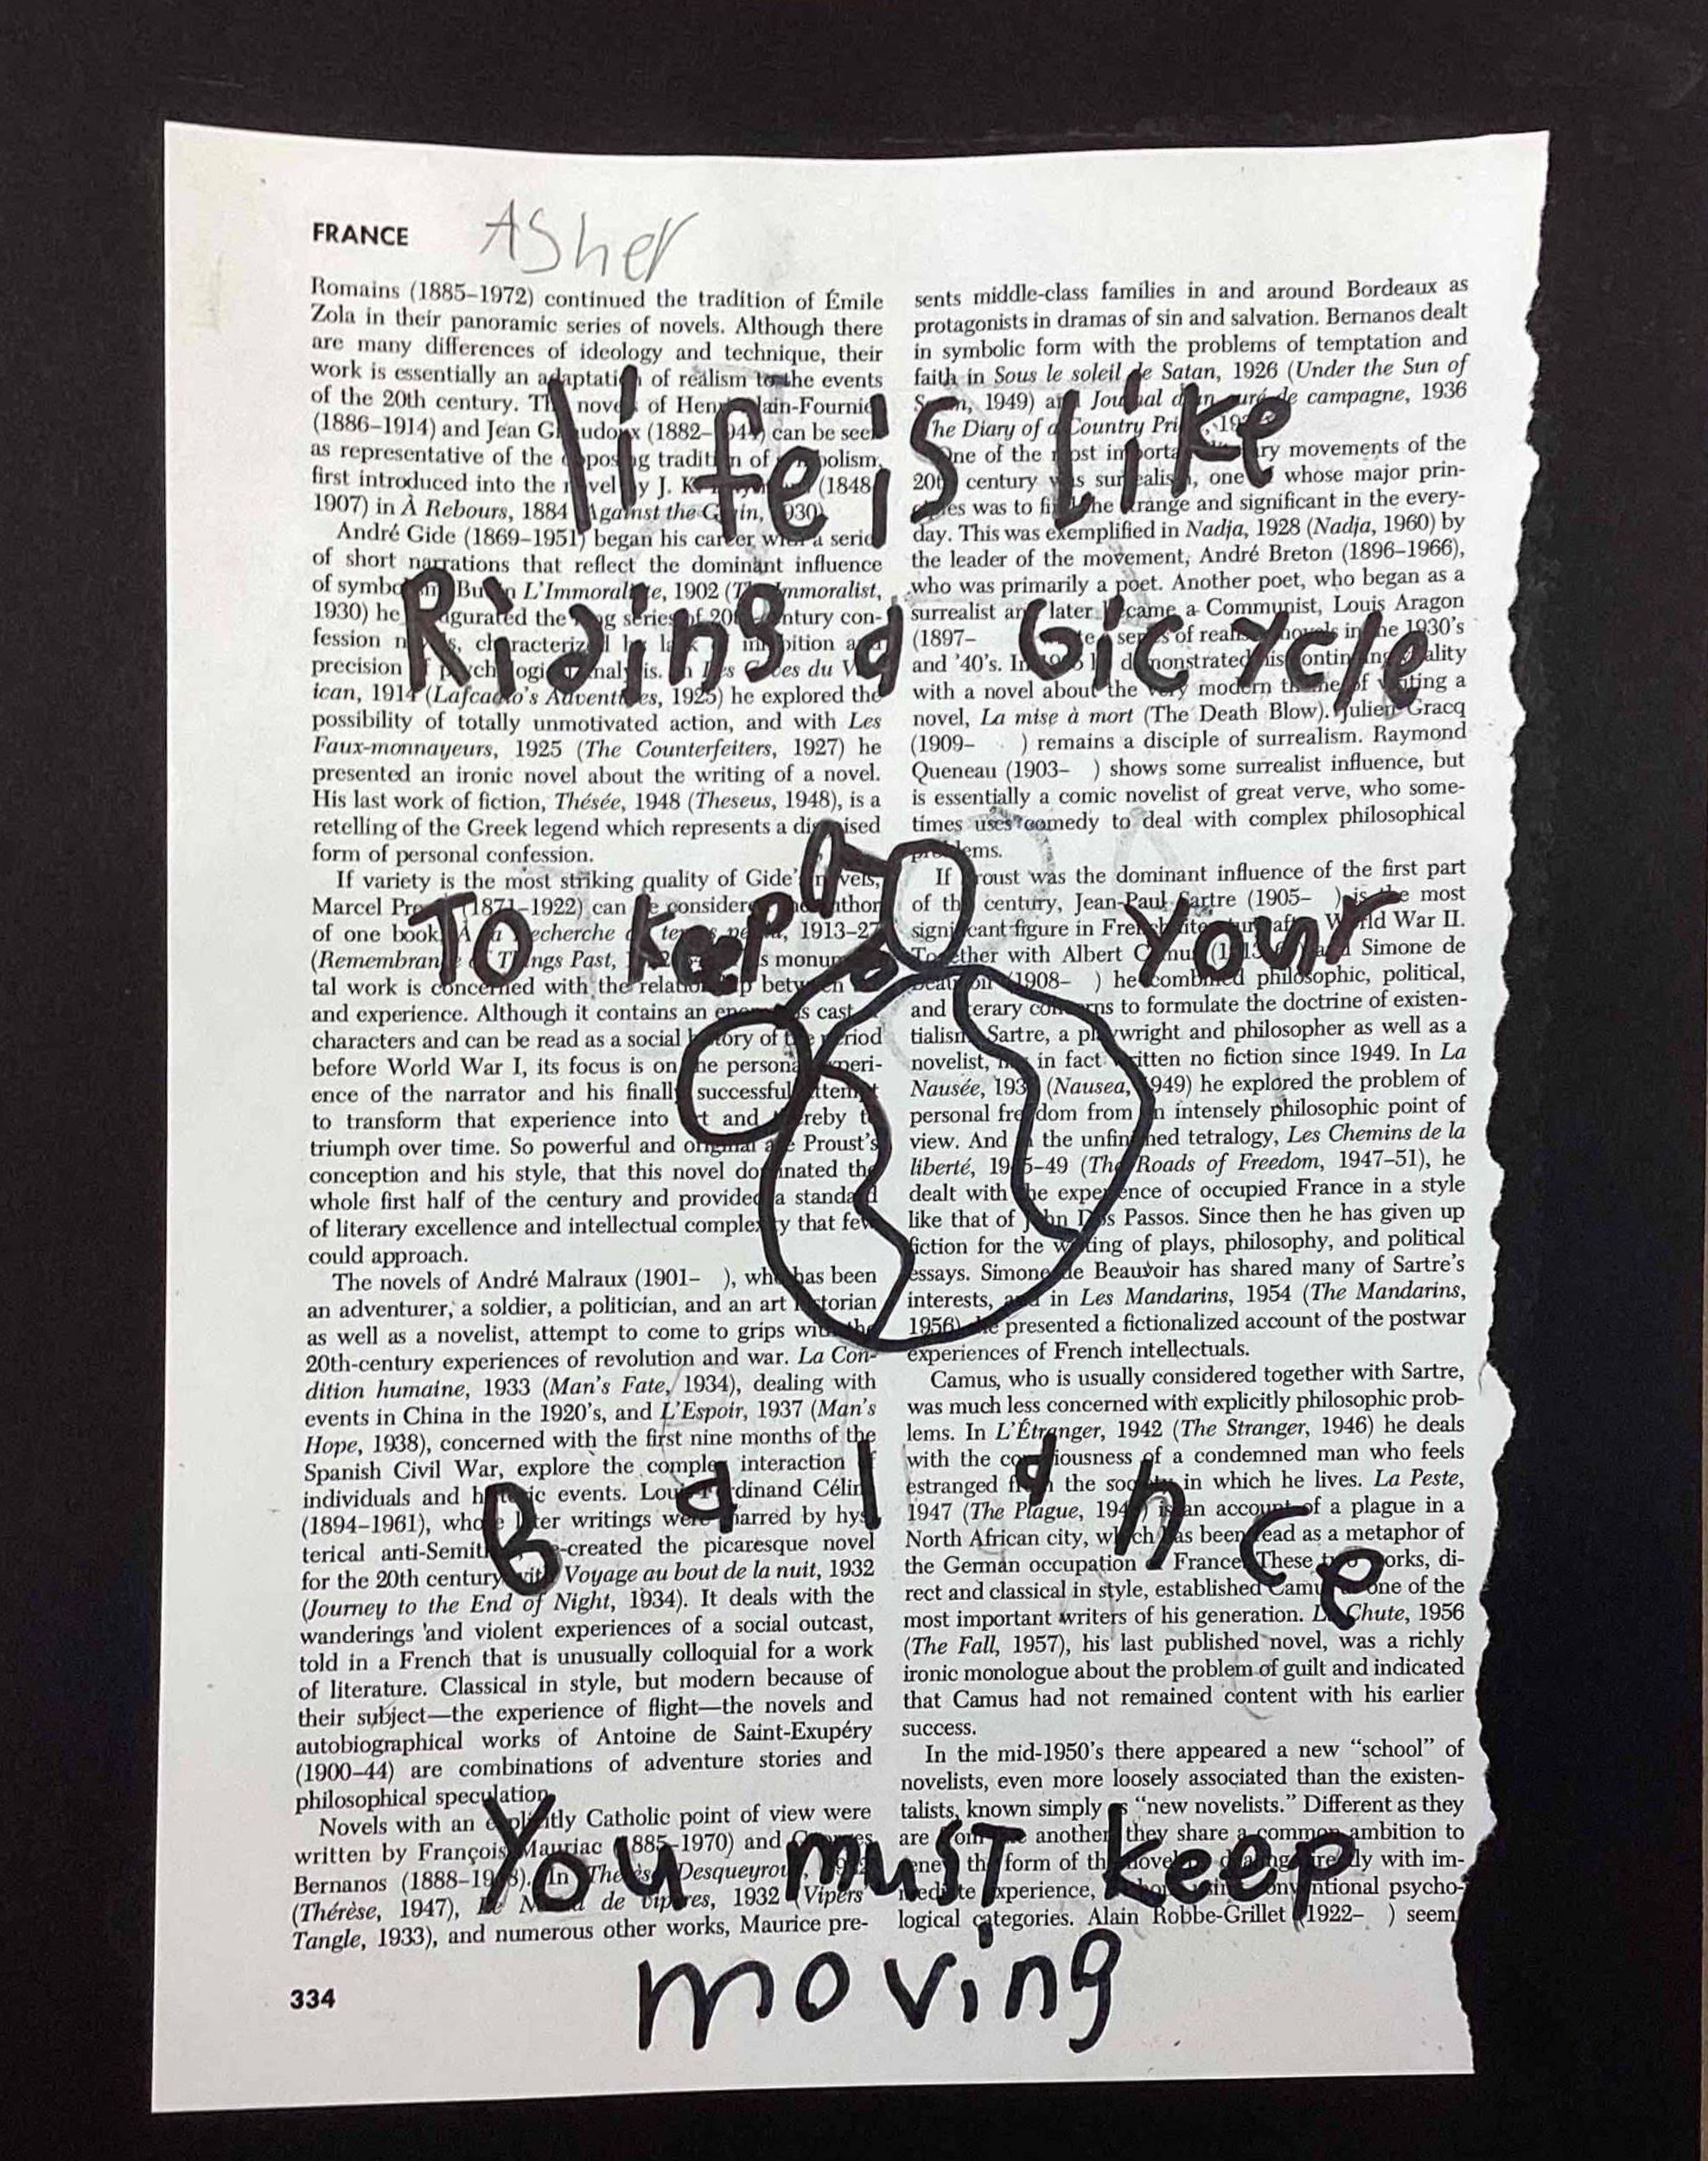 FRANCE
Asher
life is like
Riding a bicycle
To keep your
Balance
You must keep
moving
Romains (1885–1972) continued the tradition of Émile
Zola in their panoramic series of novels. Although there
are many differences of ideology and technique, their
work is essentially an adaptation of realism to the events
of the 20th century. The novels of Henri Alain-Fournier
(1886–1914) and Jean Giraudoux (1882–1944) can be seen
as representative of the opposing tradition of symbolism,
first introduced into the novel by J. K. (1848
1907) in À Rebours, 1884 (Against the Grain, 1930).
André Gide (1869–1951) began his career with a series
of short narrations that reflect the dominant influence
of symbolism. But in L'Immoraliste, 1902 (The Immoralist,
1930) he inaugurated the long series of 20th century con-
fession novels, characterized by lack inhibition and
precision of psychological analysis. In Les Caves du Vat
ican, 1914 (Lafcadio's Adventures, 1925) he explored the
possibility of totally unmotivated action, and with Les
Faux-monnayeurs, 1925 (The Counterfeiters, 1927) he
presented an ironic novel about the writing of a novel.
His last work of fiction, Thésée, 1948 (Theseus, 1948), is a
retelling of the Greek legend which represents a disguised
form of personal confession.
If variety is the most striking quality of Gide's novels,
Marcel Proust (1871–1922) can be considered the author
of one book. À la recherche du temps perdu, 1913–27
(Remembrance of Things Past, monumen-
tal work is concerned with the relationship between
and experience. Although it contains an enormous cast of
characters and can be read as a social history of the period
before World War I, its focus is on the personal experi-
ence of the narrator and his finally successful attempt
to transform that experience into art and thereby to
triumph over time. So powerful and original are Proust's
conception and his style, that this novel dominated the
whole first half of the century and provided a standard
of literary excellence and intellectual complexity that few
could approach.
The novels of André Malraux (1901– ), who has been
an adventurer, a soldier, a politician, and an art historian
as well as a novelist, attempt to come to grips with the
20th-century experiences of revolution and war. La Con-
dition humaine, 1933 (Man's Fate, 1934), dealing with
events in China in the 1920's, and L'Espoir, 1937 (Man's
Hope, 1938), concerned with the first nine months of the
Spanish Civil War, explore the complex interaction of
individuals and historic events. Louis Ferdinand Céline
(1894–1961), whose later writings were marred by hys-
terical anti-Semitism, re-created the picaresque novel
for the 20th century with Voyage au bout de la nuit, 1932
(Journey to the End of Night, 1934). It deals with the
wanderings and violent experiences of a social outcast,
told in a French that is unusually colloquial for a work
of literature. Classical in style, but modern because of
their subject—the experience of flight—the novels and
autobiographical works of Antoine de Saint-Exupéry
(1900–44) are combinations of adventure stories and
philosophical speculation.
Novels with an explicitly Catholic point of view were
written by François Mauriac (1885–1970) and Georges
Bernanos (1888–1948). In Thérèse Desqueyroux, 1927
(Thérèse, 1947), Le Nœud de vipères, 1932 (Vipers'
Tangle, 1933), and numerous other works, Maurice pre-
sents middle-class families in and around Bordeaux as
protagonists in dramas of sin and salvation. Bernanos dealt
in symbolic form with the problems of temptation and
faith in Sous le soleil de Satan, 1926 (Under the Sun of
Satan, 1949) and Journal d'un curé de campagne, 1936
(The Diary of a Country Priest, 1937).
One of the most important literary movements of the
20th century was surrealism, one of whose major prin-
ciples was to find the strange and significant in the every-
day. This was exemplified in Nadja, 1928 (Nadja, 1960) by
the leader of the movement, André Breton (1896–1966),
who was primarily a poet. Another poet, who began as a
surrealist and later became a Communist, Louis Aragon
(1897– series of realist novels in the 1930's
and '40's. In he demonstrated his continuing vitality
with a novel about the very modern theme of writing a
novel, La mise à mort (The Death Blow). Julien Gracq
(1909– ) remains a disciple of surrealism. Raymond
Queneau (1903– ) shows some surrealist influence, but
is essentially a comic novelist of great verve, who some-
times uses comedy to deal with complex philosophical
problems.
If Proust was the dominant influence of the first part
of the century, Jean-Paul Sartre (1905– ) is the most
significant figure in French literature after World War II.
Together with Albert Camus (1913–60) and Simone de
Beauvoir (1908– ) he combined philosophic, political,
and literary concerns to formulate the doctrine of existen-
tialism. Sartre, a playwright and philosopher as well as a
novelist, has in fact written no fiction since 1949. In La
Nausée, 1938 (Nausea, 1949) he explored the problem of
personal freedom from an intensely philosophic point of
view. And in the unfinished tetralogy, Les Chemins de la
liberté, 1945–49 (The Roads of Freedom, 1947–51), he
dealt with the experience of occupied France in a style
like that of John Dos Passos. Since then he has given up
fiction for the writing of plays, philosophy, and political
essays. Simone de Beauvoir has shared many of Sartre's
interests, and in Les Mandarins, 1954 (The Mandarins,
1956) she presented a fictionalized account of the postwar
experiences of French intellectuals.
Camus, who is usually considered together with Sartre,
was much less concerned with explicitly philosophic prob-
lems. In L'Étranger, 1942 (The Stranger, 1946) he deals
with the consciousness of a condemned man who feels
estranged from the society in which he lives. La Peste,
1947 (The Plague, 1948) is an account of a plague in a
North African city, which has been read as a metaphor of
the German occupation of France. These two works, di-
rect and classical in style, established Camus as one of the
most important writers of his generation. La Chute, 1956
(The Fall, 1957), his last published novel, was a richly
ironic monologue about the problem of guilt and indicated
that Camus had not remained content with his earlier
success.
In the mid-1950's there appeared a new "school" of
novelists, even more loosely associated than the existen-
talists, known simply as "new novelists." Different as they
are from one another, they share a common ambition to
renew the form of the novel by dealing directly with im-
mediate experience, without using conventional psycho-
logical categories. Alain Robbe-Grillet (1922– ) seem
334